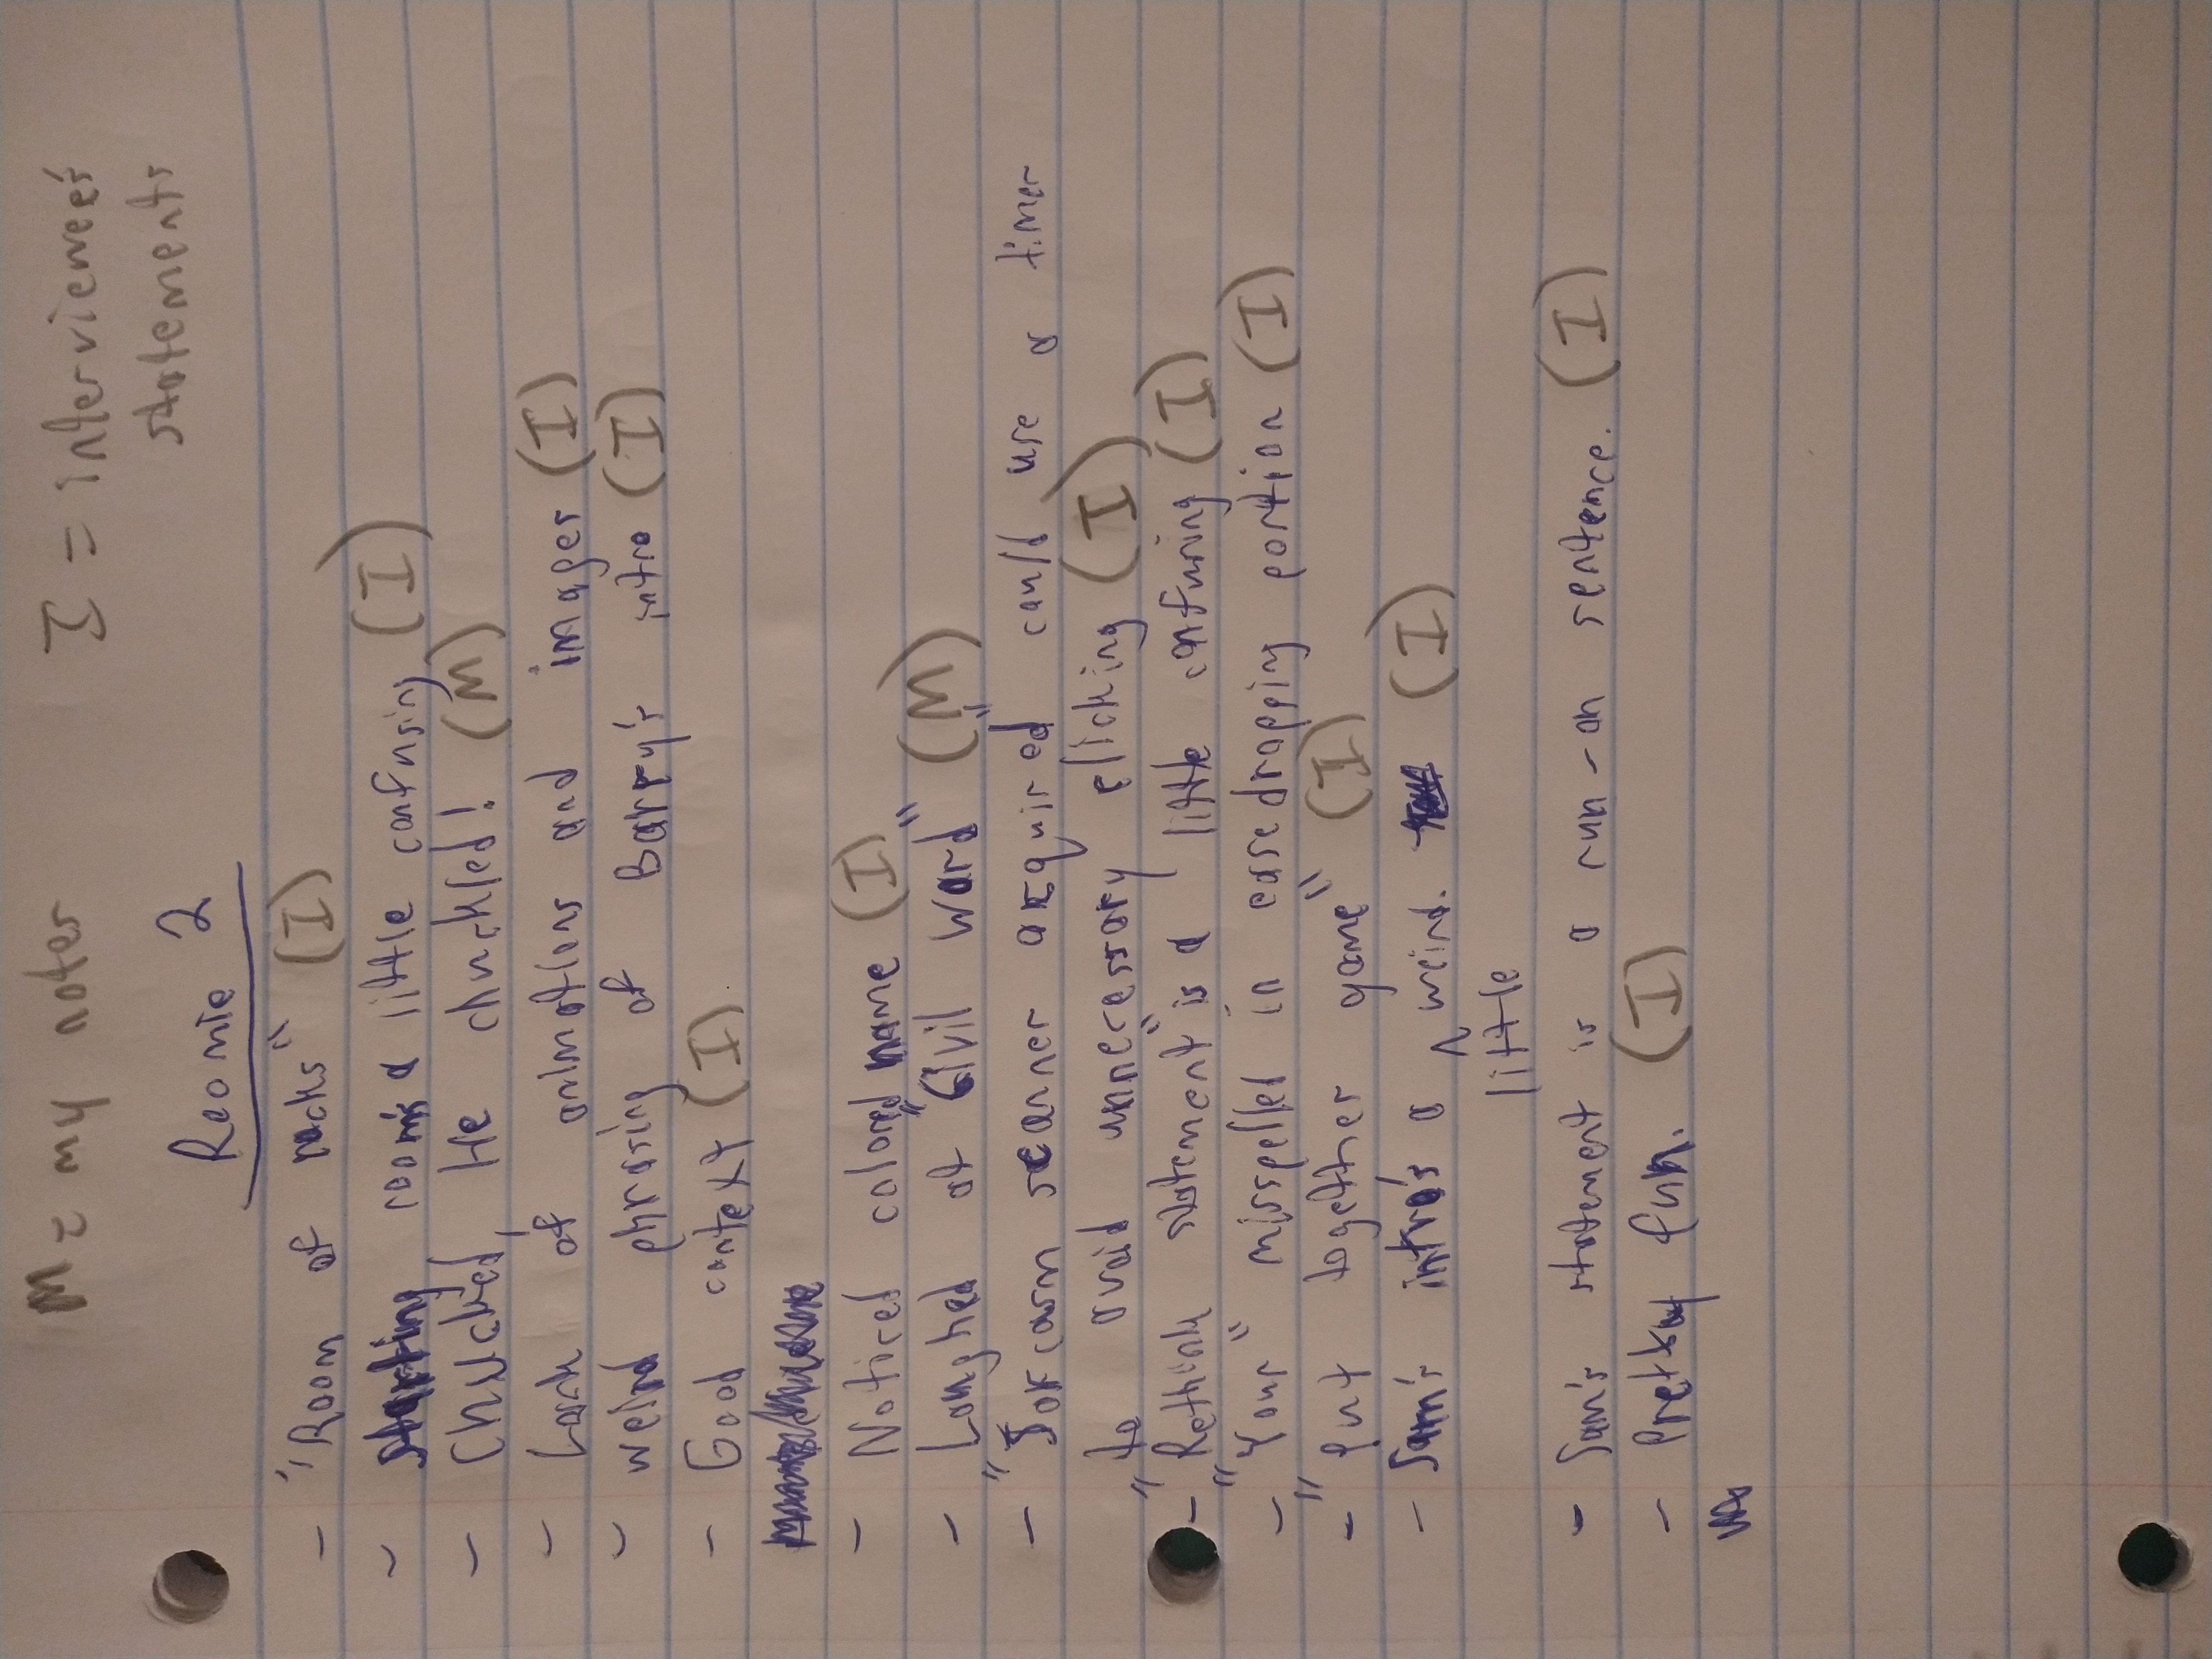 M = my notes
I = interviewee's
statements
Roomie 2
- "Room of rocks" (I)
- starting room's a little confusing (I)
- Chucked, He chuckled! (M)
- Lack of animations and images (I)
- weird phrasing of Barry's intro (I)
- Good context (I).
- Noticed colored name (I)
- Laughed at "Civil Ward" (M)
- "Sarcasm scanner acquired" could use a timer
to avoid unnecessary clicking (I)
- "Rethink statement" is a little confusing (I)
- "Your" misspelled in easedropping portion (I)
- "put together game" (I)
- Sam's intro's a ^ weird. (I)
little
- Sam's statement is a run-on sentence. (I)
- Pretty fun. (I)